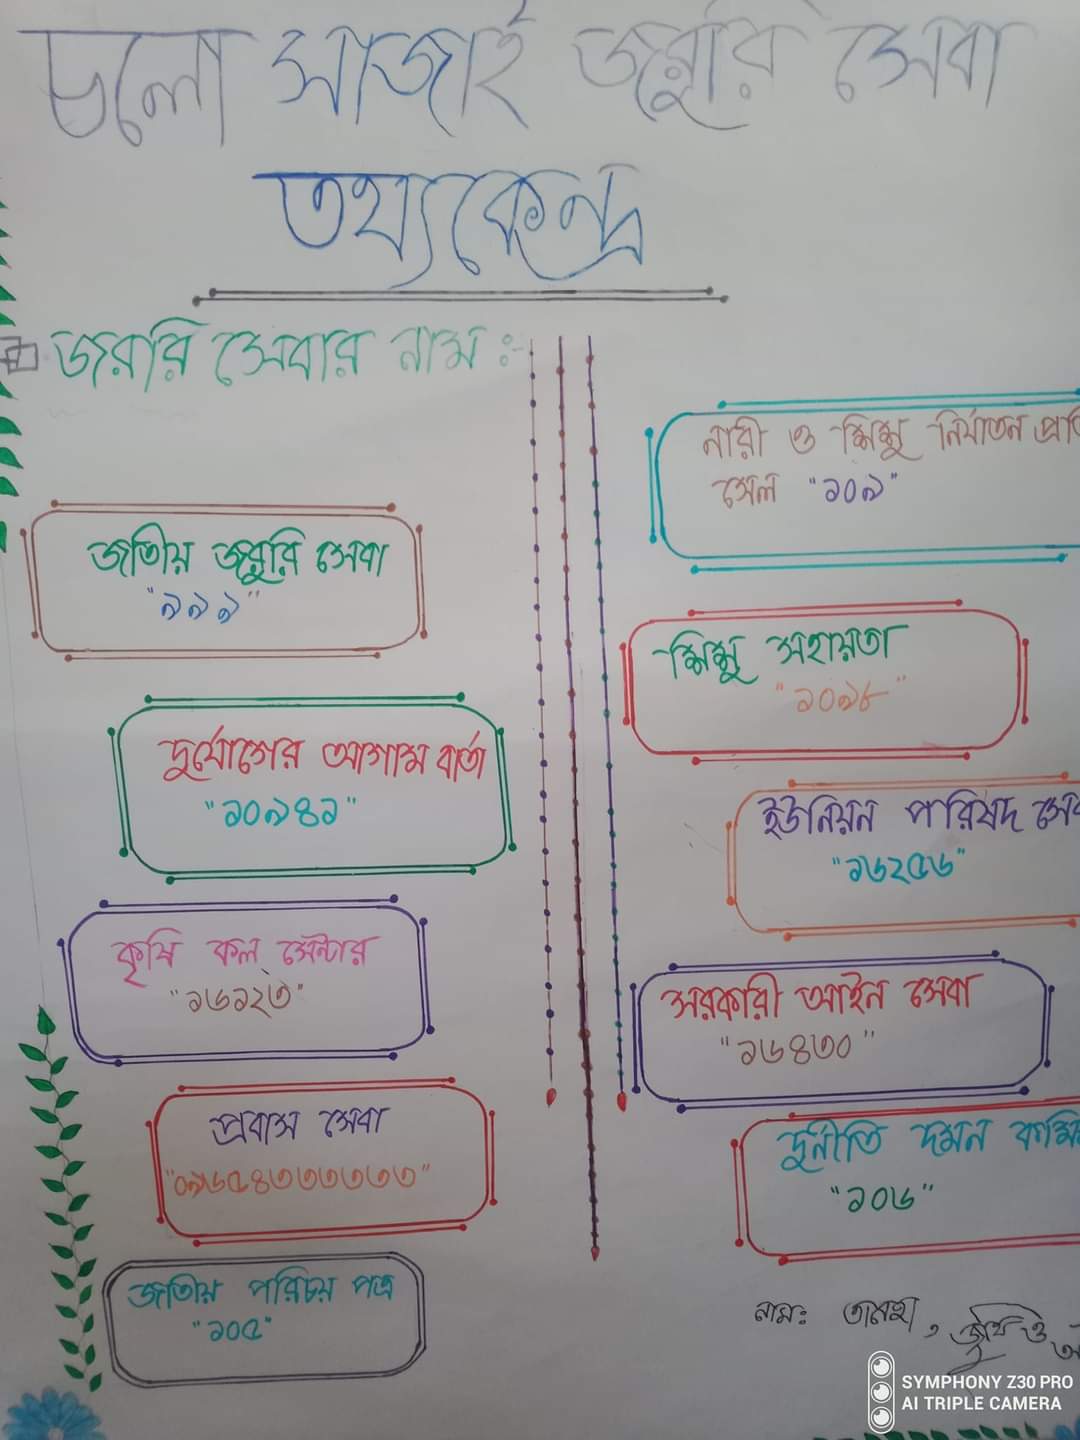 চলো সাজাই জরুরি সেবা
তথ্যকেন্দ্র
জররি সেবার নাম :-
জাতীয় জরুরি সেবা
"৯৯৯"
দুর্যোগের আগাম বার্তা
"১০৯৪১"
কৃষি কল সেন্টার
"১৬১২৩"
প্রবাস সেবা
"০৯৬৫৪৩৩৩৩৩৩"
জাতীয় পরিচয় পত্র
"১০৫"
নারী ও শিশু নির্যাতন প্রতি
সেল "১০৯"
শিশু সহায়তা
"১০৯৮"
ইউনিয়ন পরিষদ সেব
"১৬২৫৬"
সরকারী আইন সেবা
"১৬৪৩০"
দুর্নীতি দমন কমি
"১০৬"
নাম: ও
SYMPHONY Z30 PRO
AI TRIPLE CAMERA